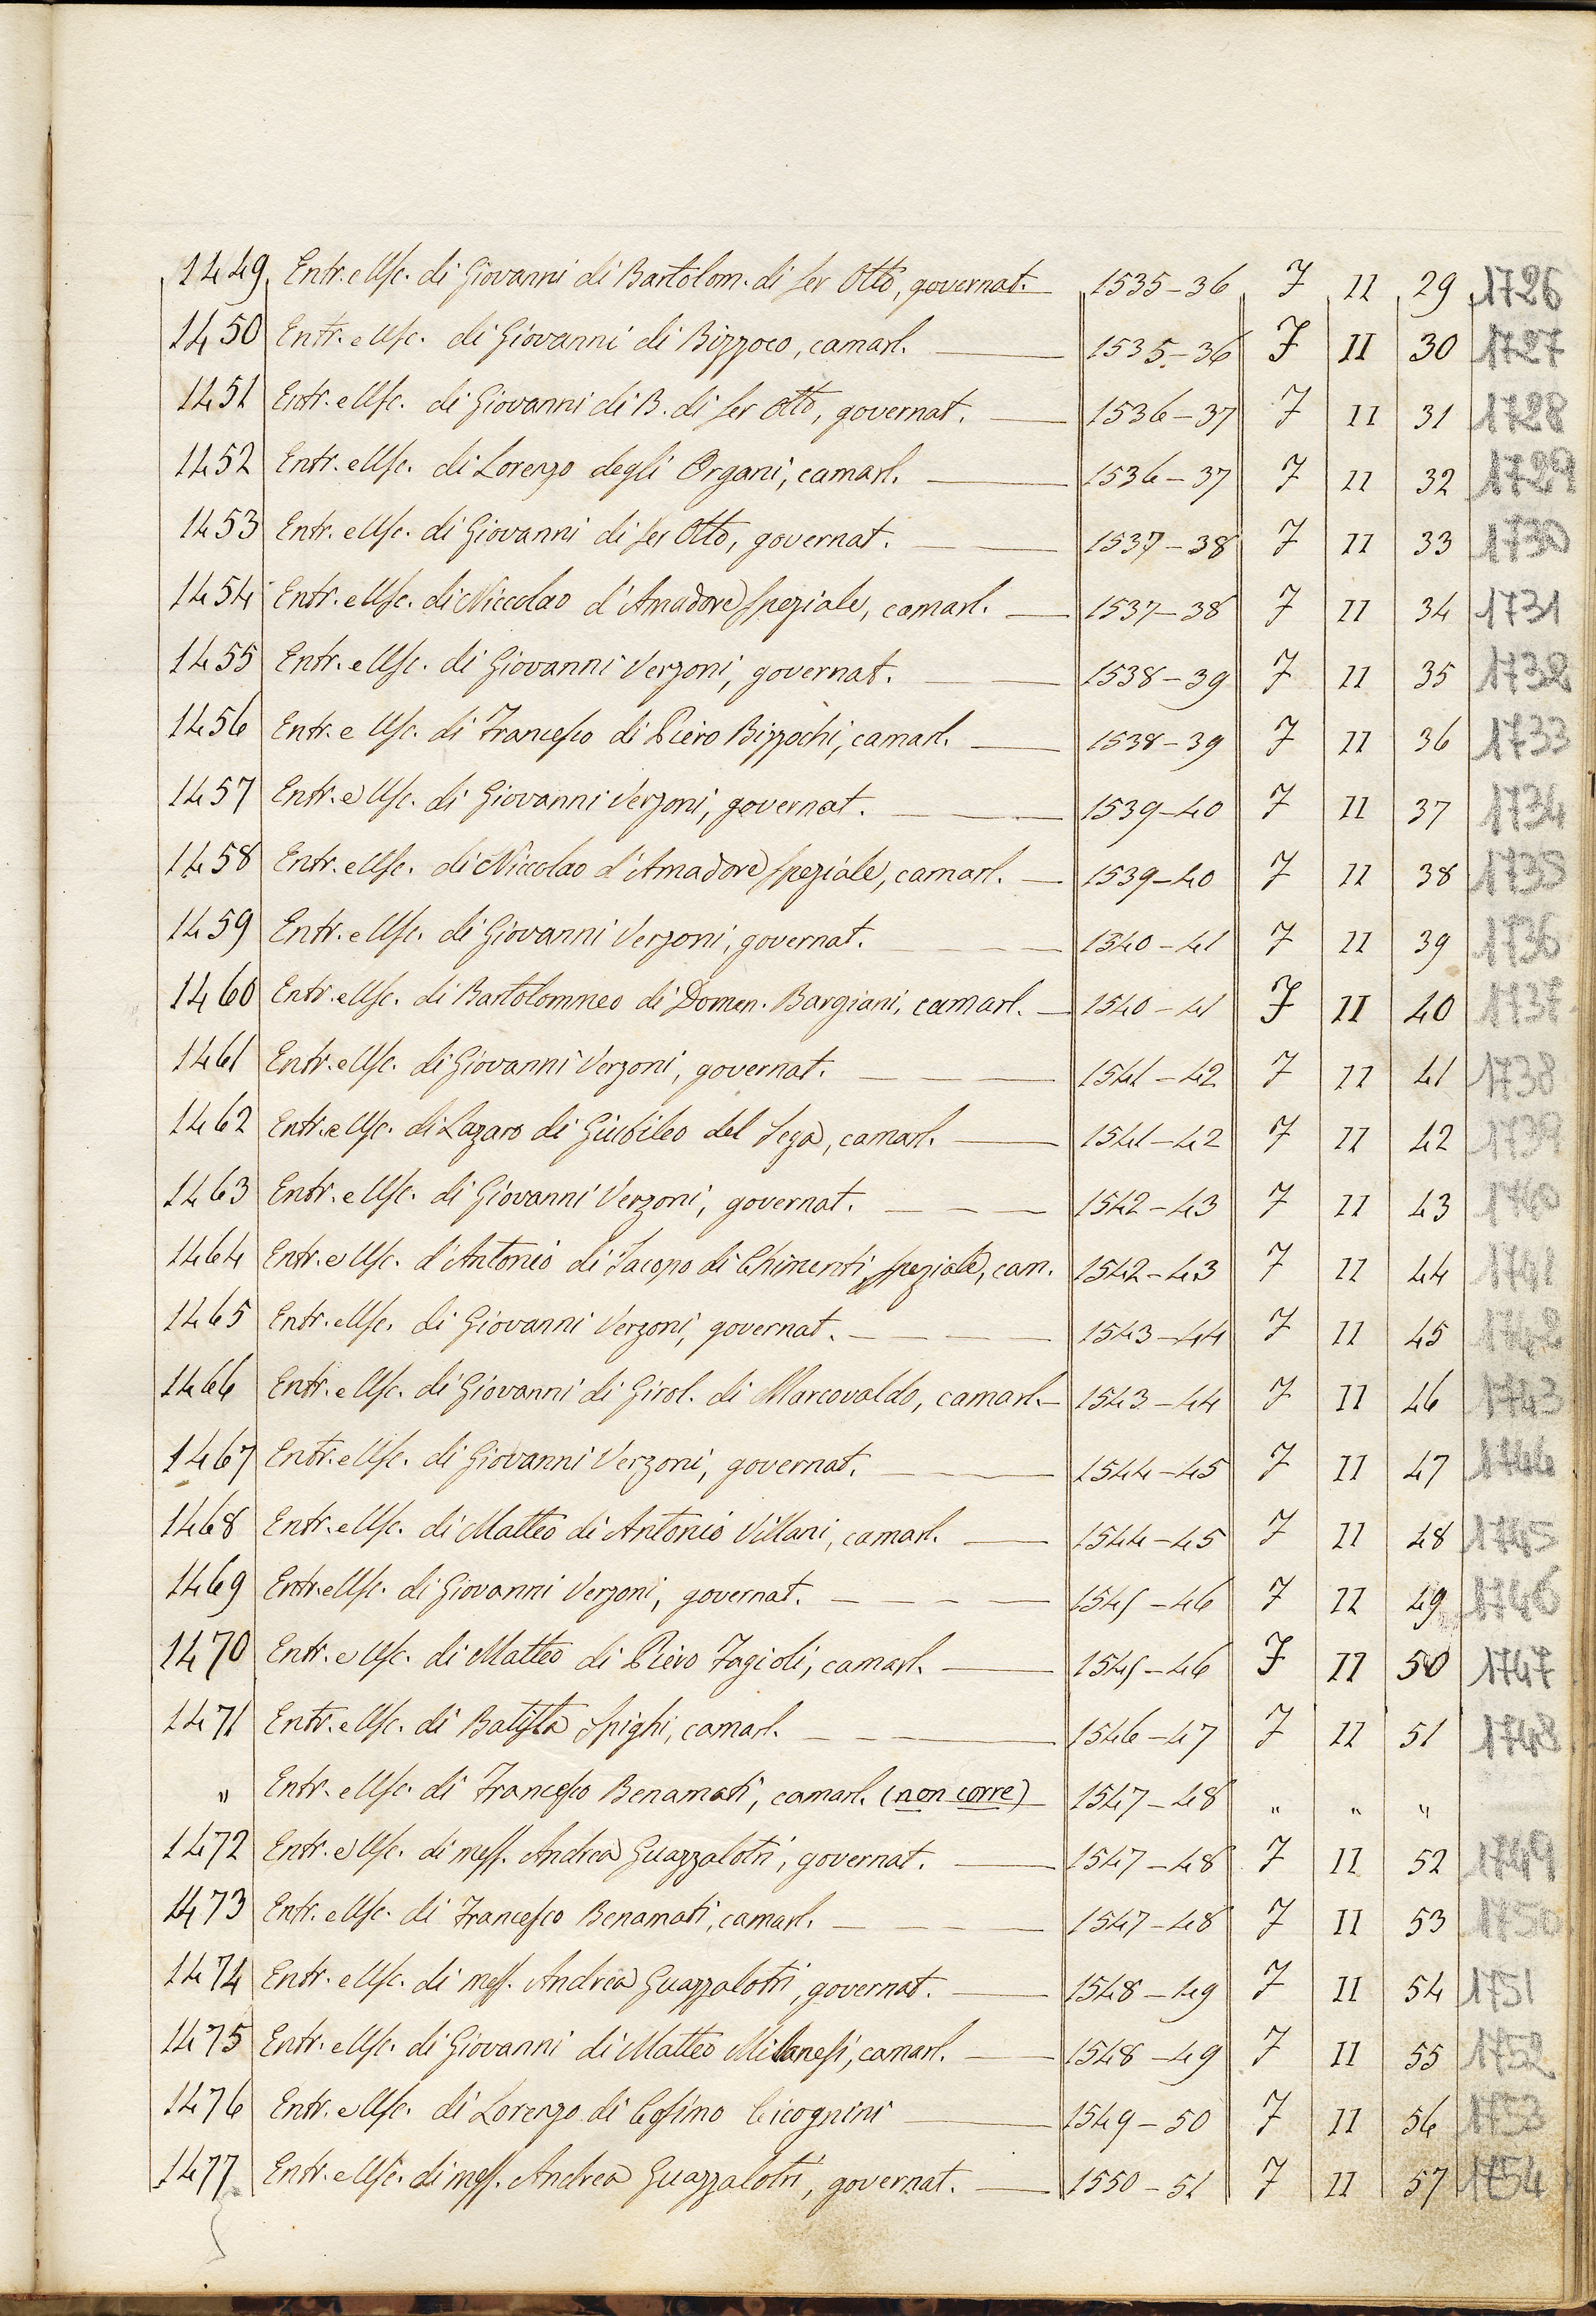 1449 Entr. e Usc. di Giovanni di Bartolom. di ser Otto, governat. 1535-36 F II 29 1726
1450 Entr. e Usc. di Giovanni di Bizzoco, camarl. 1535-36 F II 30 1727
1451 Entr. e Usc. di Giovanni di B. di ser Otto, governat. 1536-37 F II 31 1728
1452 Entr. e Usc. di Lorenzo degli Organi, camarl. 1536-37 F II 32 1729
1453 Entr. e Usc. di Giovanni di ser Otto, governat. 1537-38 F II 33 1730
1454 Entr. e Usc. di Niccolao d'Amadore speziale, camarl. 1537-38 F II 34 1731
1455 Entr. e Usc. di Giovanni Verzoni, governat. 1538-39 F II 35 1732
1456 Entr. e Usc. di Francesco di Piero Bizzochi, camarl. 1538-39 F II 36 1733
1457 Entr. e Usc. di Giovanni Verzoni, governat. 1539-40 F II 37 1734
1458 Entr. e Usc. di Niccolao d'Amadore speziale, camarl. 1539-40 F II 38 1735
1459 Entr. e Usc. di Giovanni Verzoni, governat. 1540-41 F II 39 1736
1460 Entr. e Usc. di Bartolommeo di Domen. Bargiani, camarl. 1540-41 F II 40 1737
1461 Entr. e Usc. di Giovanni Verzoni, governat. 1541-42 F II 41 1738
1462 Entr. e Usc. di Lazaro di Giubileo del Sega, camarl. 1541-42 F II 42 1739
1463 Entr. e Usc. di Giovanni Verzoni, governat. 1542-43 F II 43 1740
1464 Entr. e Usc. d'Antonio di Iacopo di Chimenti, speziale, cam. 1542-43 F II 44 1741
1465 Entr. e Usc. di Giovanni Verzoni, governat. 1543-44 F II 45 1742
1466 Entr. e Usc. di Giovanni di Girol. di Marcovaldo, camarl. 1543-44 F II 46 1743
1467 Entr. e Usc. di Giovanni Verzoni, governat. 1544-45 F II 47 1744
1468 Entr. e Usc. di Matteo di Antonio Villani, camarl. 1544-45 F II 48 1745
1469 Entr. e Usc. di Giovanni Verzoni, governat. 1545-46 F II 49 1746
1470 Entr. e Usc. di Matteo di Piero Fagioli, camarl. 1545-46 F II 50 1747
1471 Entr. e Usc. di Batista Spighi, camarl. 1546-47 F II 51 1748
" Entr. e Usc. di Francesco Benamati, camarl. (non corre) 1547-48 " " "
1472 Entr. e Usc. di mess. Andrea Guazzalotri, governat. 1547-48 F II 52 1749
1473 Entr. e Usc. di Francesco Benamati, camarl. 1547-48 F II 53 1750
1474 Entr. e Usc. di mess. Andrea Guazzalotri, governat. 1548-49 F II 54 1751
1475 Entr. e Usc. di Giovanni di Matteo Milanesi, camarl. 1548-49 F II 55 1752
1476 Entr. e Usc. di Lorenzo di Cosimo Cicognini 1549-50 F II 56 1753
1477 Entr. e Usc. di mess. Andrea Guazzalotri, governat. 1550-51 F II 57 1754